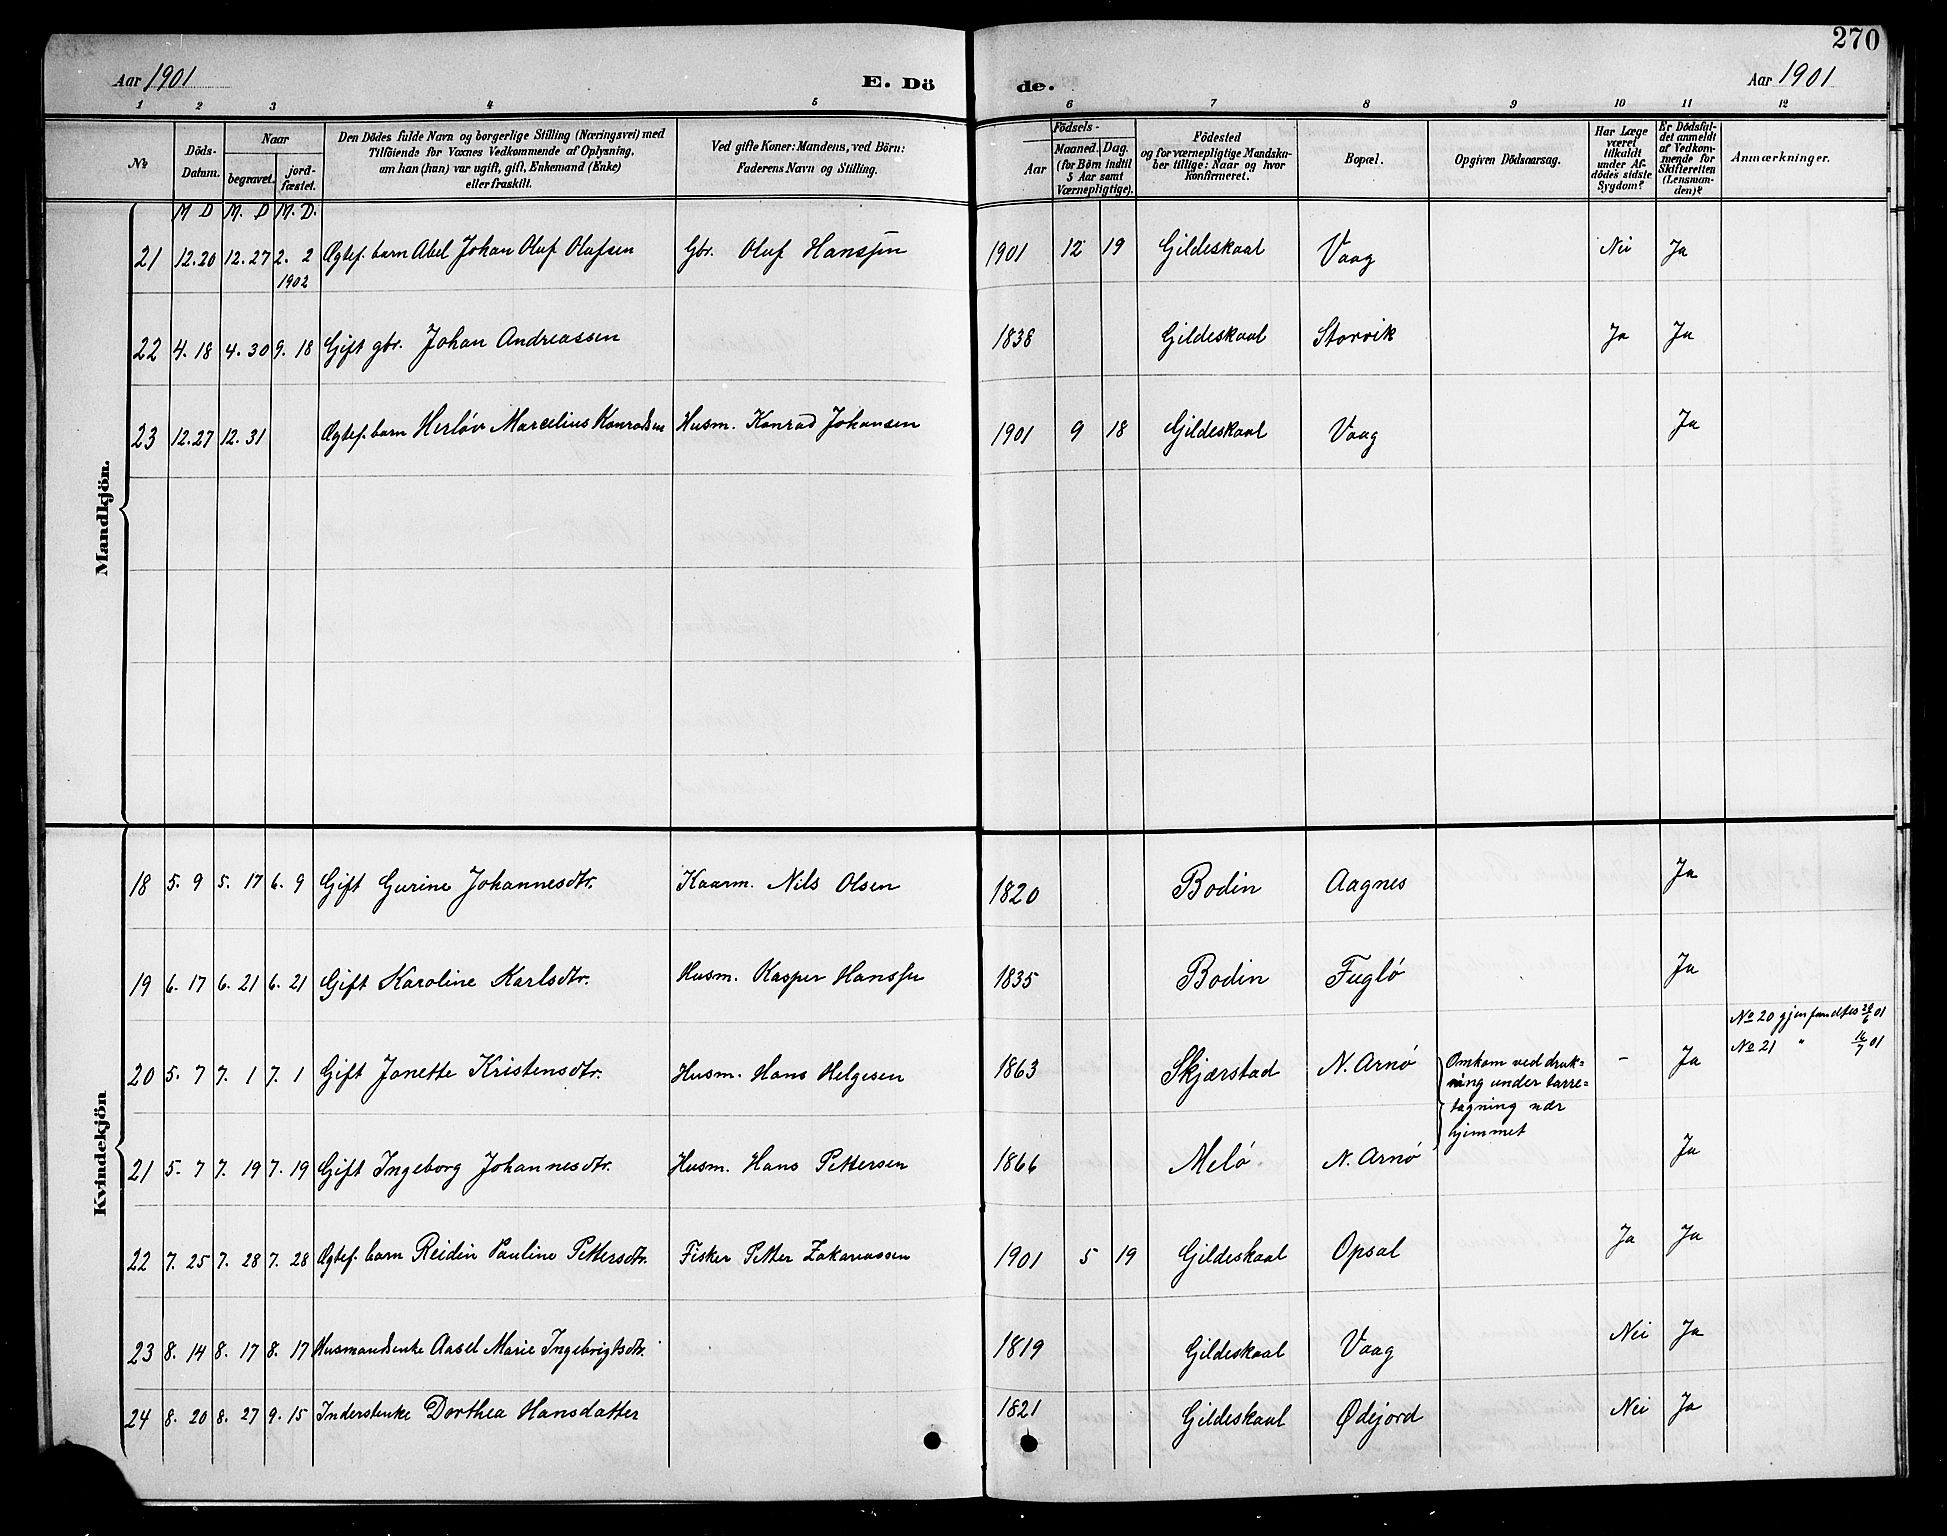 270
Aar 1901 E. Dö de. Aar 1901
1 2 3 4 5 6 7 8 9 10 11 12
№ Döds-Datum. Naar begravet. jordfæstet. Den Dödes fulde Navn og borgerlige Stilling (Næringsvei) med Tilföiende for Voxnes Vedkommende af Oplysning, om han (hun) var ugift, gift, Enkemand (Enke) eller fraskilt. Ved gifte Koner: Mandens, ved Börn: Faderens Navn og Stilling. Födsels- Aar Maaned. Dag. (for Börn indtil 5 Aar samt Værnepligtige). Födested og for værnepligtige Mandskaber tillige: Naar og hvor Konfirmeret. Bopæl. Opgiven Dödsaarsag. Har Læge været tilkaldt under Afdödes sidste Sygdom? Er Dödsfaldet anmeldt af Vedkommende for Skifteretten (Lensmanden)? Anmærkninger.
M D M. D M. D.
Mandkjön.
21 12.20 12.27 2. 2 1902 Ægtef. barn Abel Johan Oluf Olufsen Gbr. Oluf Hanssen 1901 12 19 Gildeskaal Vaag Nei Ja
22 4. 18 4. 30 9. 18 Gift gbr. Johan Andreassen 1838 Gildeskaal Storvik Ja Ja
23 12.27 12.31 Ægtef. barn Herløv Marcelius Konradsen Husm. Konrad Johansen 1901 9 18 Gildeskaal Vaag Ja
Kvindekjön
18 5. 9 5. 17 6. 9 Gift Gurine Johannesdtr. Kaarm. Nils Olsen 1820 Bodin Aagnes Ja
19 6. 17 6. 21 6. 21 Gift Karoline Karlsdtr. Husm. Kasper Hanssen 1835 Bodin Fuglø Ja
No 20 gjenfandtes 24/6 01
No 21 " 16/7 01
20 5. 7 7. 1 7. 1 Gift Janette Kristensdtr. Husm. Hans Helgesen 1863 Skjærstad N. Arnø Omkom ved drukning under tarretagning nær hjemmet – Ja
21 5. 7 7. 19 7. 19 Gift Ingeborg Johannesdtr. Husm. Hans Pettersen 1866 Melø. N. Arnø Ja
22 7. 25 7. 28 7. 28 Ægtef. barn Reidin Pauline Pettersdtr. Fisker Petter Zakariassen 1901 5 19 Gildeskaal Opsal Ja Ja
23 8. 14 8. 17 8. 17 Husmandsenke Aasel Marie Ingebrigtsdtr. 1819 Gildeskaal Vaag Nei Ja
24 8. 20 8. 27 9. 15 Inderstenke Dorthea Hansdatter 1821 Gildeskaal Ødejord Nei Ja